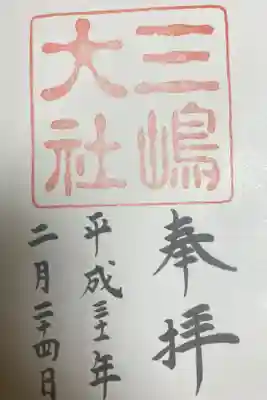 三嶋
大社
奉拝
平成三十一年
二月二十四日